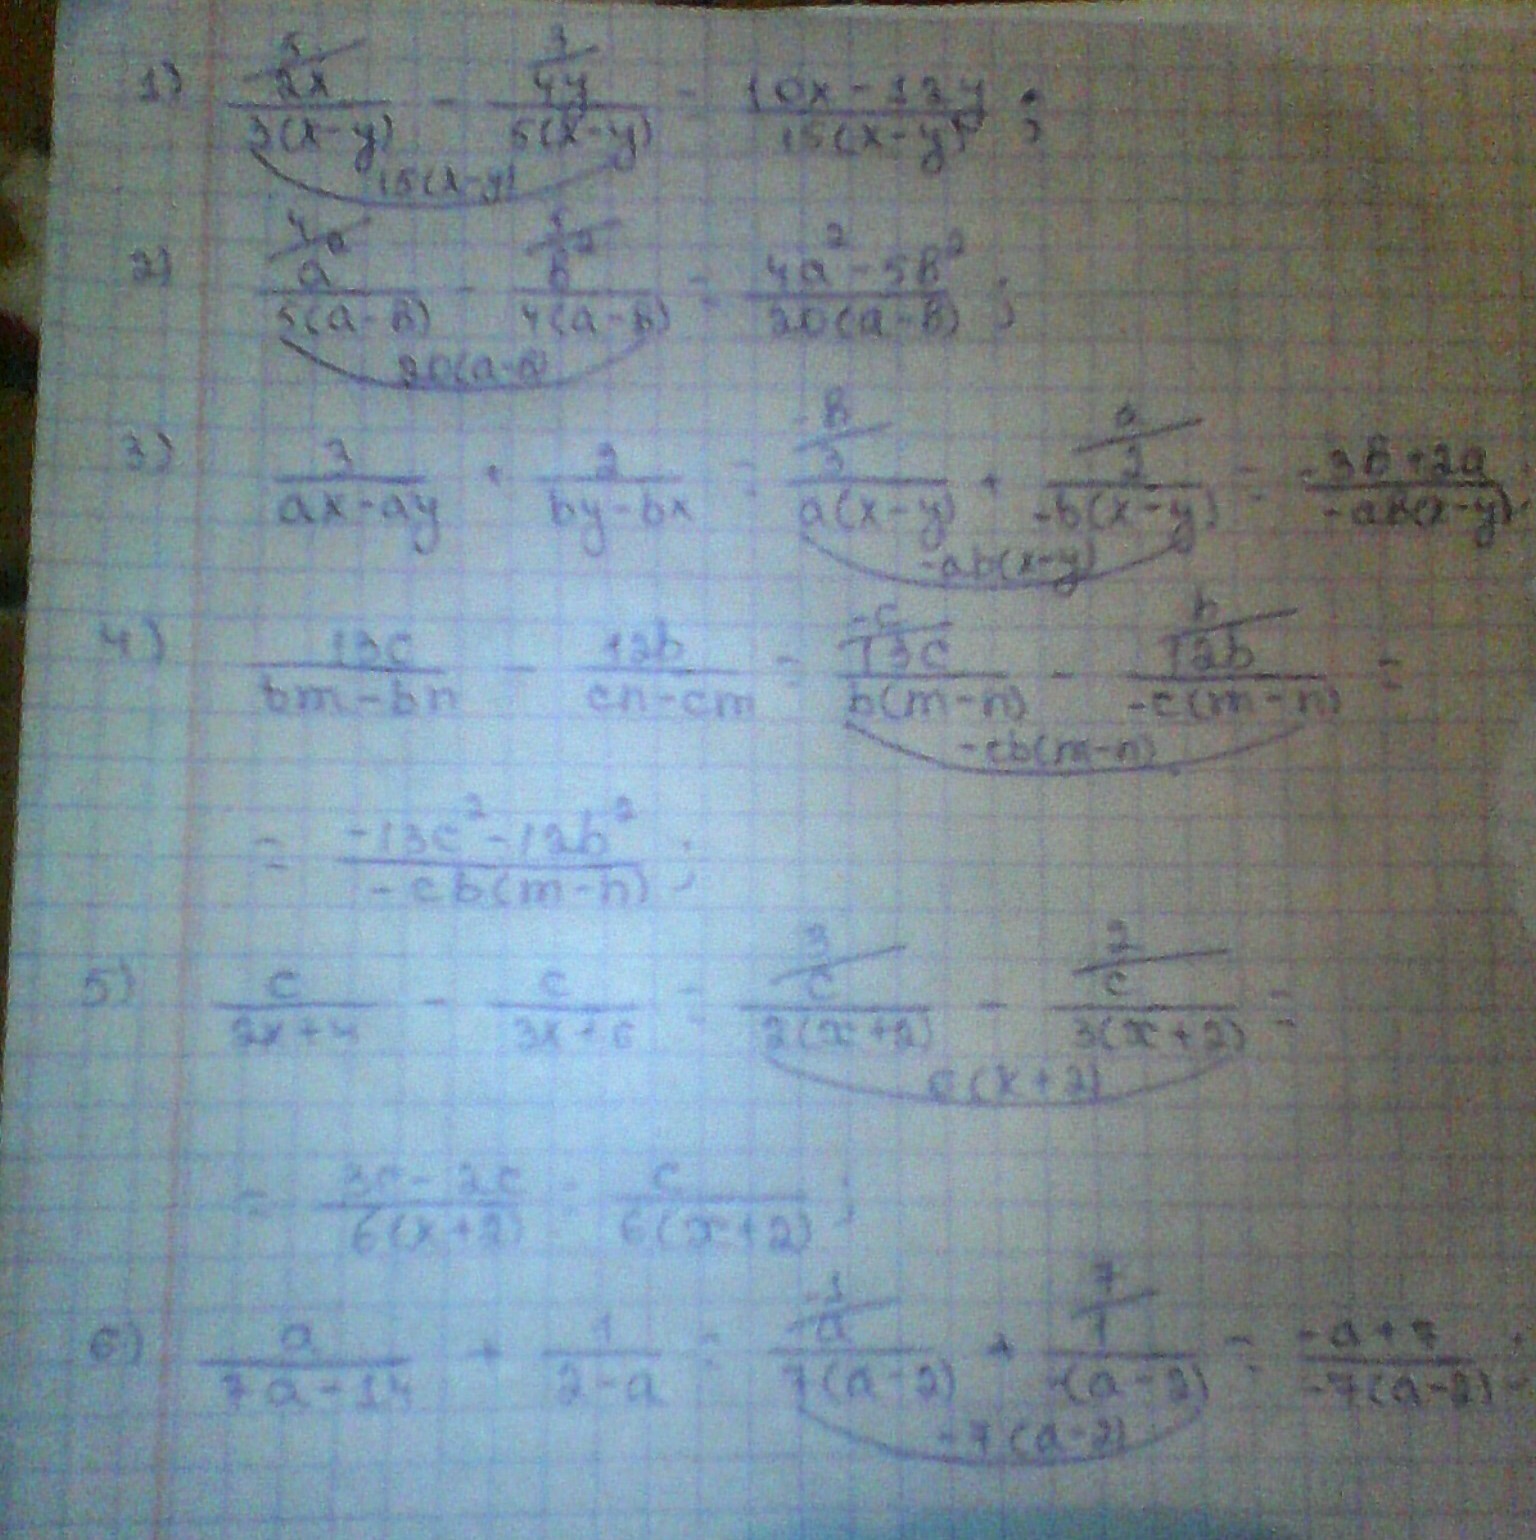 1) 2x/3(x-y) - 4y/5(x-y) = 10x-12y/15(x-y) ;
15(x-y)
2) a²/5(a-b) - b²/4(a-b) = 4a²-5b²/20(a-b) ;
20(a-b)
3) 3/ax-ay + 2/by-bx = 3/a(x-y) + 2/-b(x-y) = -3b+2a/-ab(x-y)
-ab(x-y)
4) 13c/bm-bn - 12b/cn-cm = 13c/b(m-n) - 12b/-c(m-n) =
-cb(m-n)
= -13c²-12b²/-cb(m-n) ;
5) c/2x+4 - c/3x+6 = c/2(x+2) - c/3(x+2) =
6(x+2)
= 3c-2c/6(x+2) = c/6(x+2) ;
6) a/7a-14 + 1/2-a = a/7(a-2) + 1/-(a-2) = -a+7/-7(a-2)
-7(a-2)